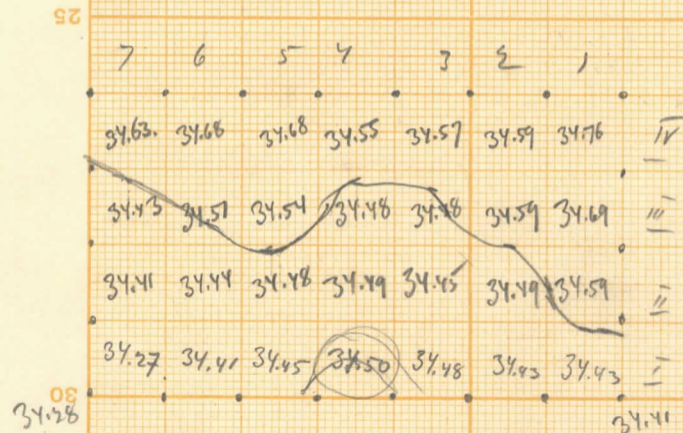 25
7 6 5 4 3 2 1
34.63. 34.68 34.68 34.55 34.57 34.59 34.76 IV
34.43 34.51 34.54 34.48 34.48 34.59 34.69 III
34.41 34.44 34.48 34.49 34.45 34.49 34.59 II
34.27 34.41 34.45 34.50 34.48 34.43 34.43 I
30
34.28 34.41